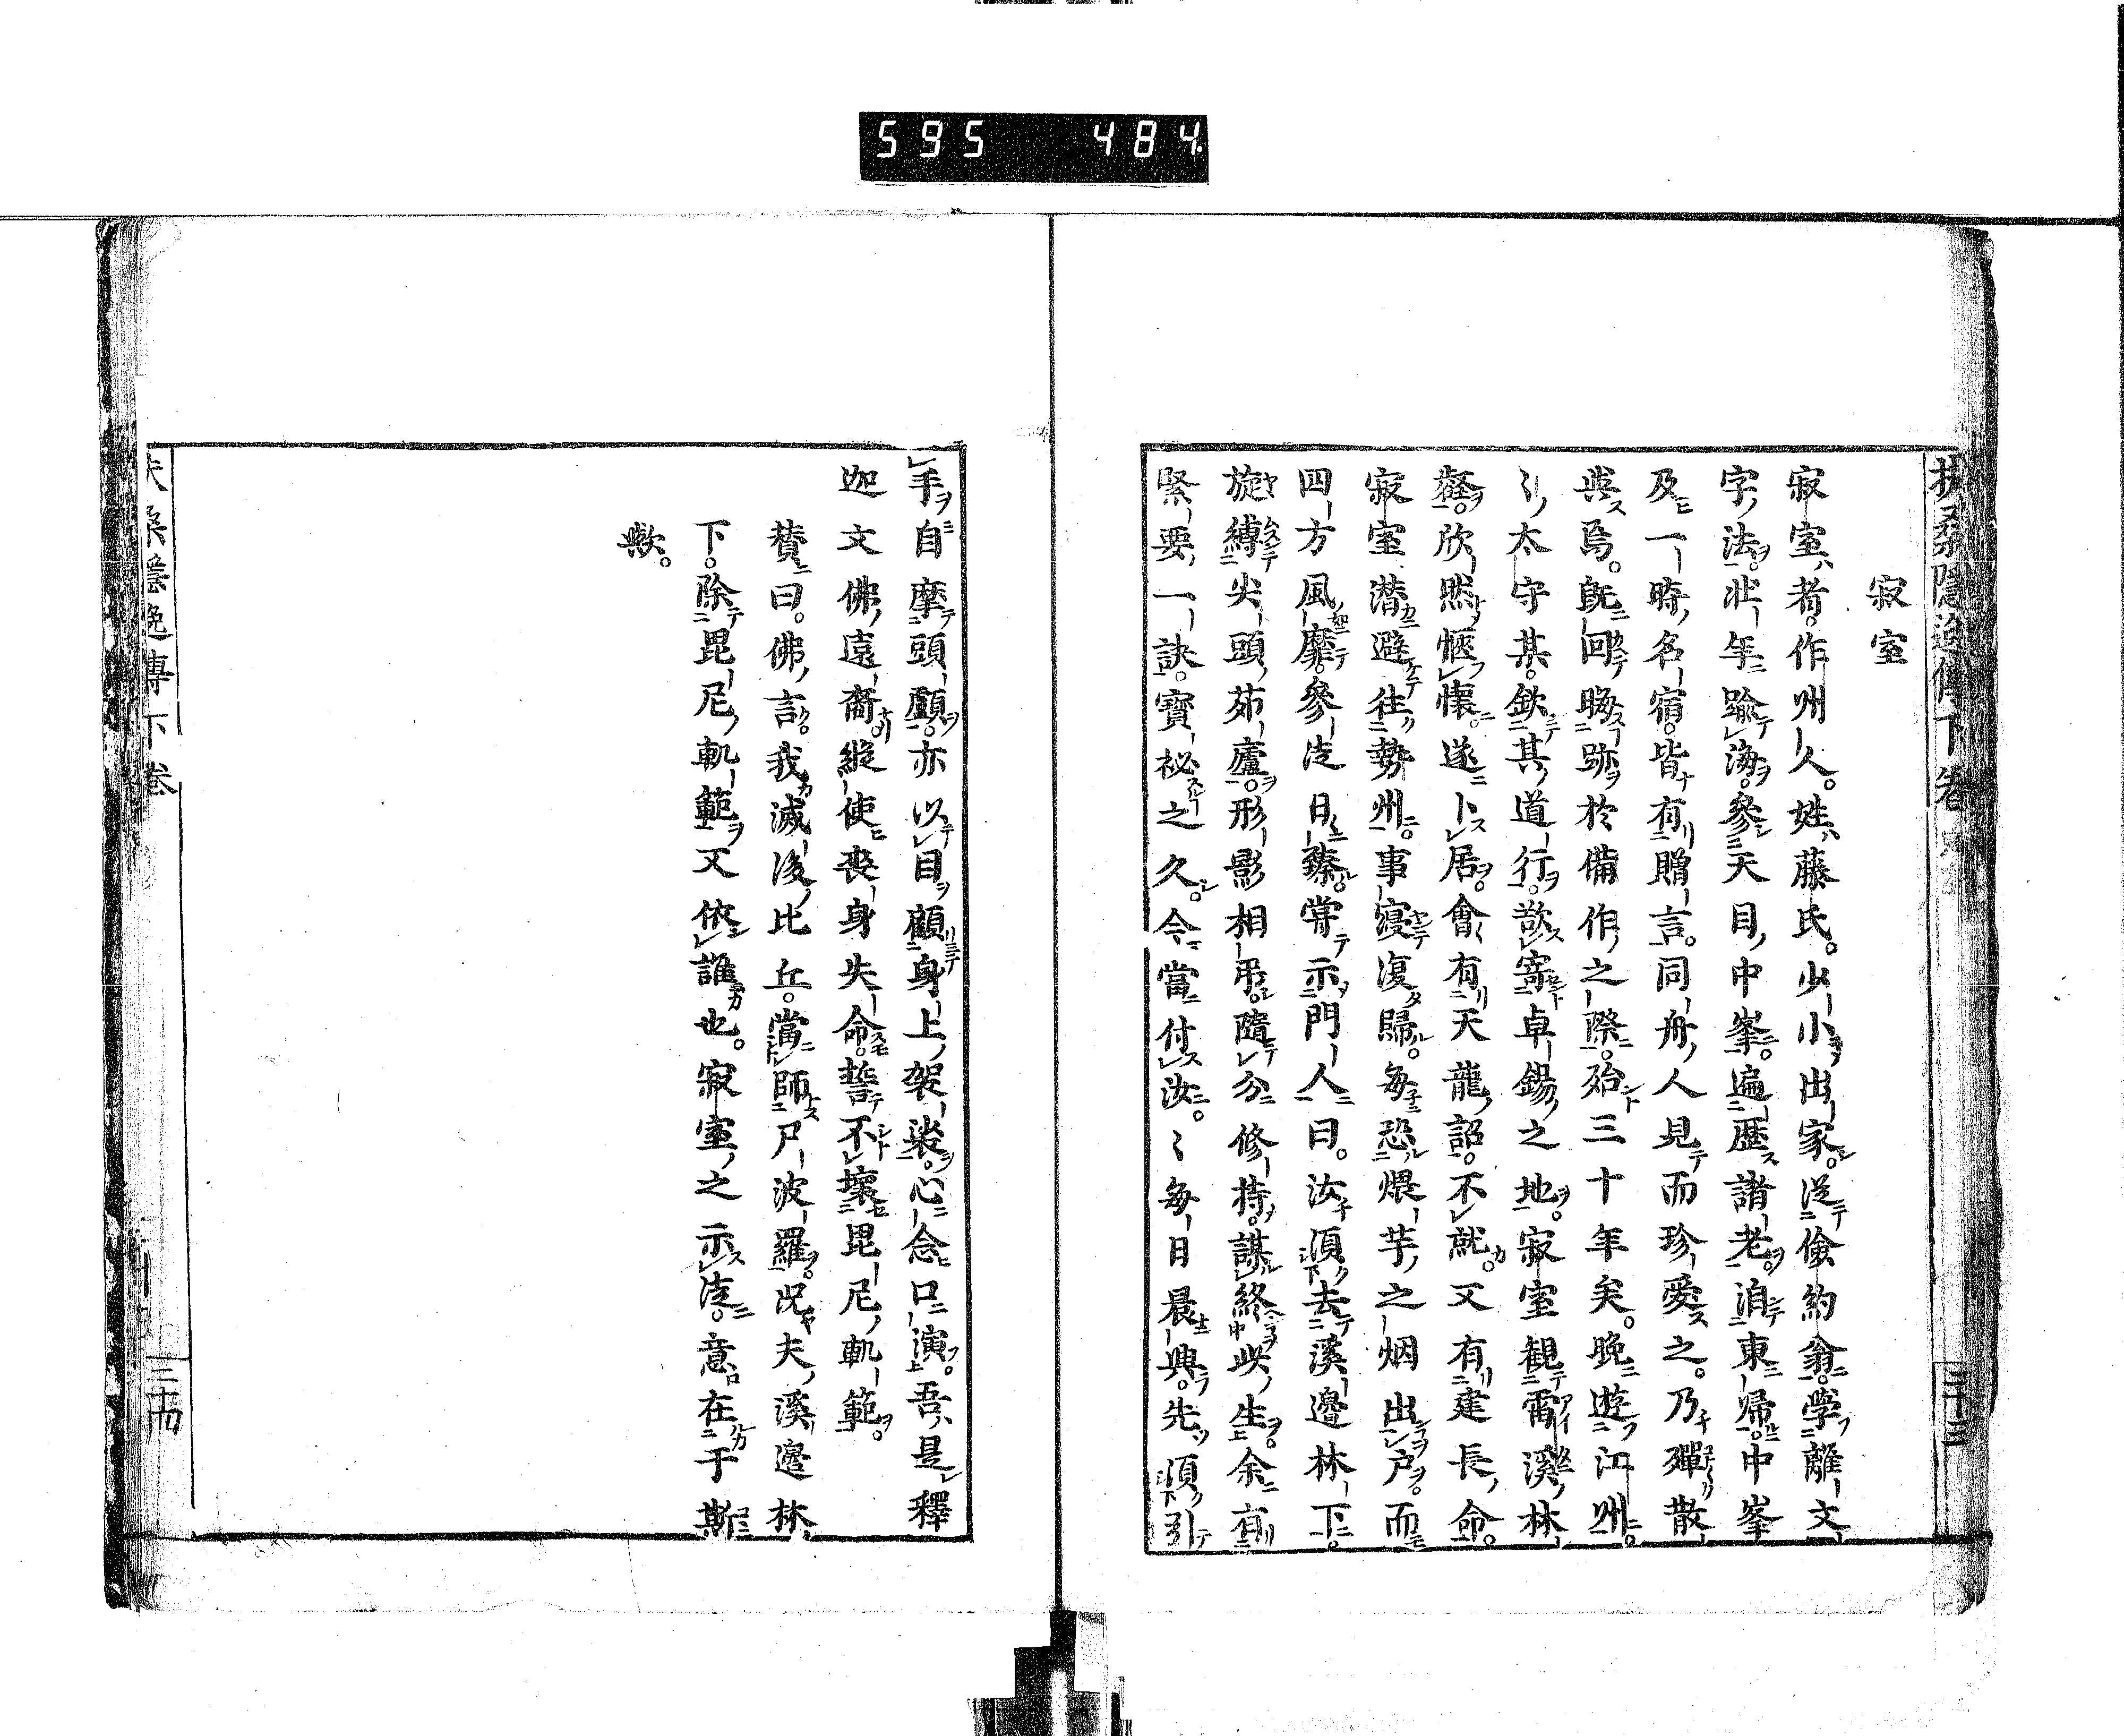 595 484
扶桑隠逸傳下卷
三十三
寂室
寂室者。作州人。姓藤氏。少小出家。從儉約翁。学離文
字法。壯年踰海。參天目中峯。遍歷諸老。洎東歸。中峯
及一時名宿。皆有贈言。同舟人見而珍愛之。乃殫散
與焉。既回晦跡於備作之際。殆三十年矣。晩遊江州。
〻太守某。欽其道行。欲寄卓錫之地。寂室観雷溪林
壑。欣然愜懷。遂卜居。會有天龍詔。不就。又有建長命。
寂室潜避往勢州。事寢復歸。每恐煨芋之烟出戸。而
四方風靡。參徒日臻。常示門人曰。汝須去溪邊林下。
旋縛尖頭茆廬。形影相吊。隨分修持。謀終此生。余有
緊要一訣。寶祕之久。今當付汝。〻每日晨興。先須引
手自摩頭顱。亦以目顧身上袈裟。心念口演。吾是釋
迦文佛遠裔。縱使喪身失命。誓不壞毘尼軌範。
賛曰。佛言。我滅後比丘。當師尸波羅。况夫溪邊林
下。除毘尼軌範。又依誰也。寂室之示徒。意在于斯
歟。
扶桑隱逸傳下卷
三十四